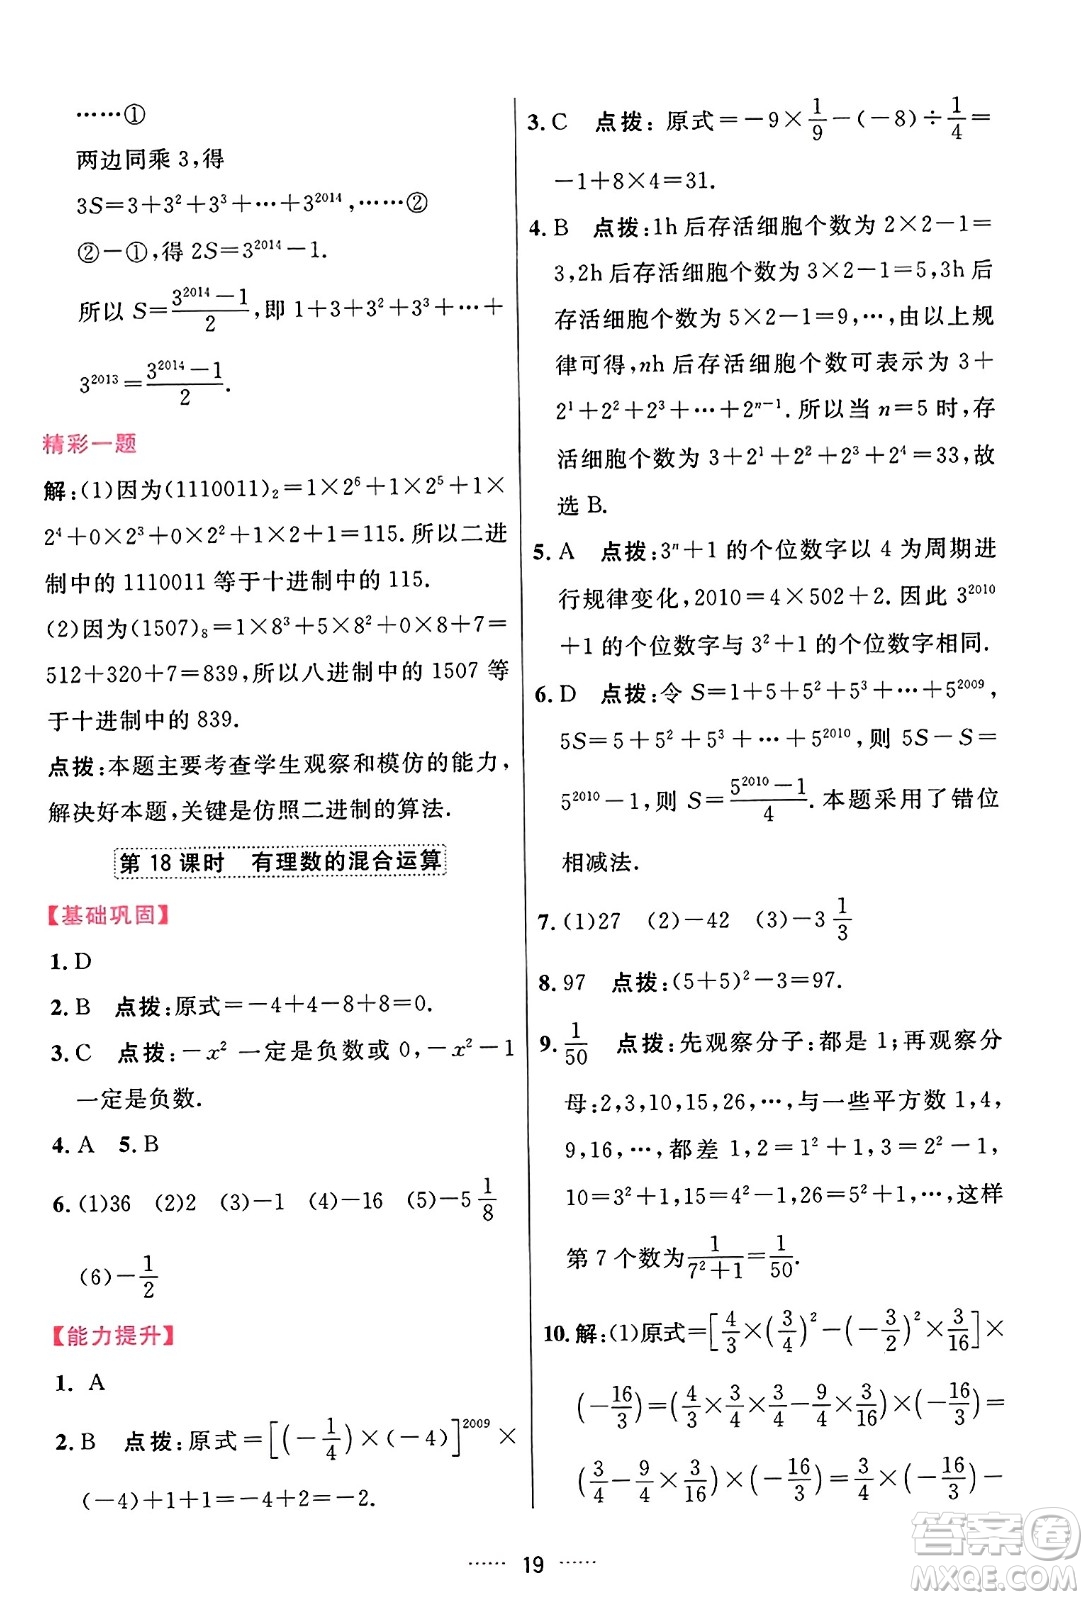 ……①
两边同乘 3,得
3S=3+3²+3³+…+3²⁰¹⁴,……②
②-①,得 2S=3²⁰¹⁴-1.
所以 S=\frac{3²⁰¹⁴-1}{2},即 1+3+3²+3³+…+
3²⁰¹³=\frac{3²⁰¹⁴-1}{2}.
精彩一题
解:(1)因为(1110011)₂=1×2⁶+1×2⁵+1×
2⁴+0×2³+0×2²+1×2+1=115. 所以二进
制中的 1110011 等于十进制中的 115.
(2)因为(1507)₈=1×8³+5×8²+0×8+7=
512+320+7=839,所以八进制中的 1507 等
于十进制中的 839.
点拨:本题主要考查学生观察和模仿的能力,
解决好本题,关键是仿照二进制的算法.
第 18 课时 有理数的混合运算
【基础巩固】
1. D
2. B 点拨:原式=-4+4-8+8=0.
3. C 点拨:-x² 一定是负数或 0,-x²-1
一定是负数.
4. A 5. B
6. (1)36 (2)2 (3)-1 (4)-16 (5)-5\frac{1}{8}
(6)-\frac{1}{2}
【能力提升】
1. A
2. B 点拨:原式=[(-\frac{1}{4})×(-4)]²⁰⁰⁹×
(-4)+1+1=-4+2=-2.
3. C 点拨:原式=-9×\frac{1}{9}-(-8)÷\frac{1}{4}=
-1+8×4=31.
4. B 点拨:1h 后存活细胞个数为 2×2-1=
3,2h 后存活细胞个数为 3×2-1=5,3h 后
存活细胞个数为 5×2-1=9,…,由以上规
律可得,nh 后存活细胞个数可表示为 3+
2¹+2²+2³+…+2ⁿ⁻¹. 所以当 n=5 时,存
活细胞个数为 3+2¹+2²+2³+2⁴=33,故
选 B.
5. A 点拨:3ⁿ+1 的个位数字以 4 为周期进
行规律变化,2010=4×502+2. 因此 3²⁰¹⁰
+1 的个位数字与 3²+1 的个位数字相同.
6. D 点拨:令 S=1+5+5²+5³+…+5²⁰⁰⁹,
5S=5+5²+5³+…+5²⁰¹⁰,则 5S-S=
5²⁰¹⁰-1,则 S=\frac{5²⁰¹⁰-1}{4}. 本题采用了错位
相减法.
7. (1)27 (2)-42 (3)-3\frac{1}{3}
8. 97 点拨:(5+5)²-3=97.
9. \frac{1}{50} 点拨:先观察分子:都是 1;再观察分
母:2,3,10,15,26,…,与一些平方数 1,4,
9,16,…,都差 1,2=1²+1,3=2²-1,
10=3²+1,15=4²-1,26=5²+1,…,这样
第 7 个数为\frac{1}{7²+1}=\frac{1}{50}.
10. 解:(1)原式=[\frac{4}{3}×(\frac{3}{4})²-(-\frac{3}{2})²×\frac{3}{16}]×
(-\frac{16}{3})=(\frac{4}{3}×\frac{3}{4}×\frac{3}{4}-\frac{9}{4}×\frac{3}{16})×(-\frac{16}{3})=
(\frac{3}{4}-\frac{9}{4}×\frac{3}{16})×(-\frac{16}{3})=\frac{3}{4}×(-\frac{16}{3})-
19
答案卷
MXQE.COM